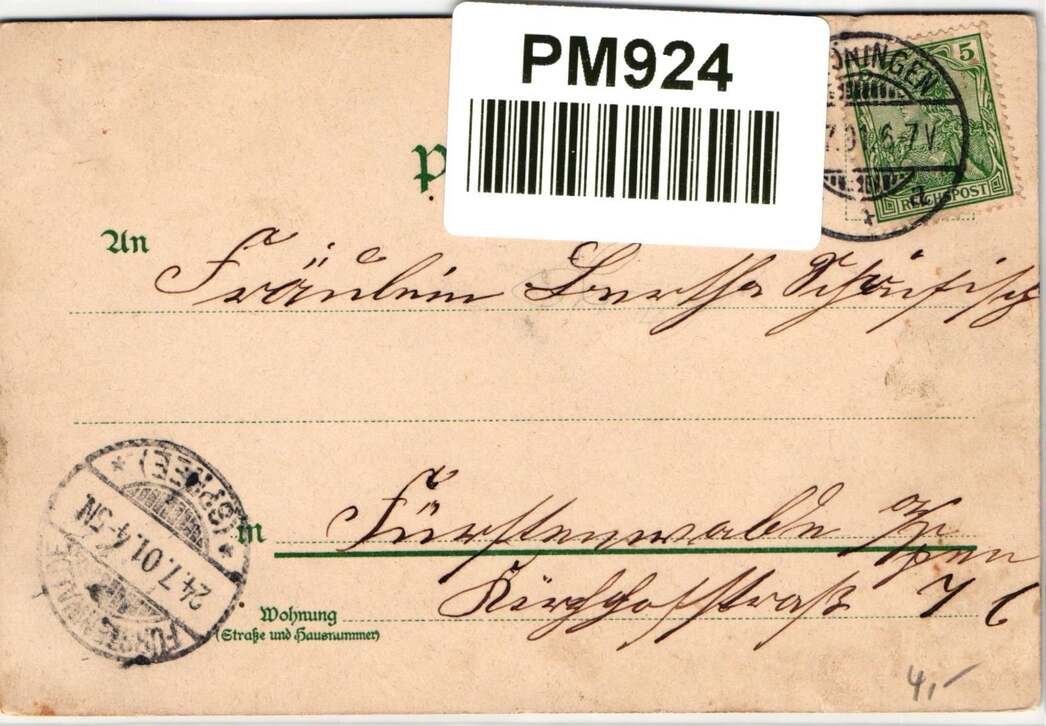 PM924
ÖNINGEN
5
7.01.6-7V.
REICHSPOST
* a
P
An
Fräulein Bertha
FÜRSTENWALDE
24.7.01.4-5N.
*(SPREE)*
in Fürstenwalde Spree
Wohnung
(Straße und Hausnummer)
Kirchhofstraße 7
4,-